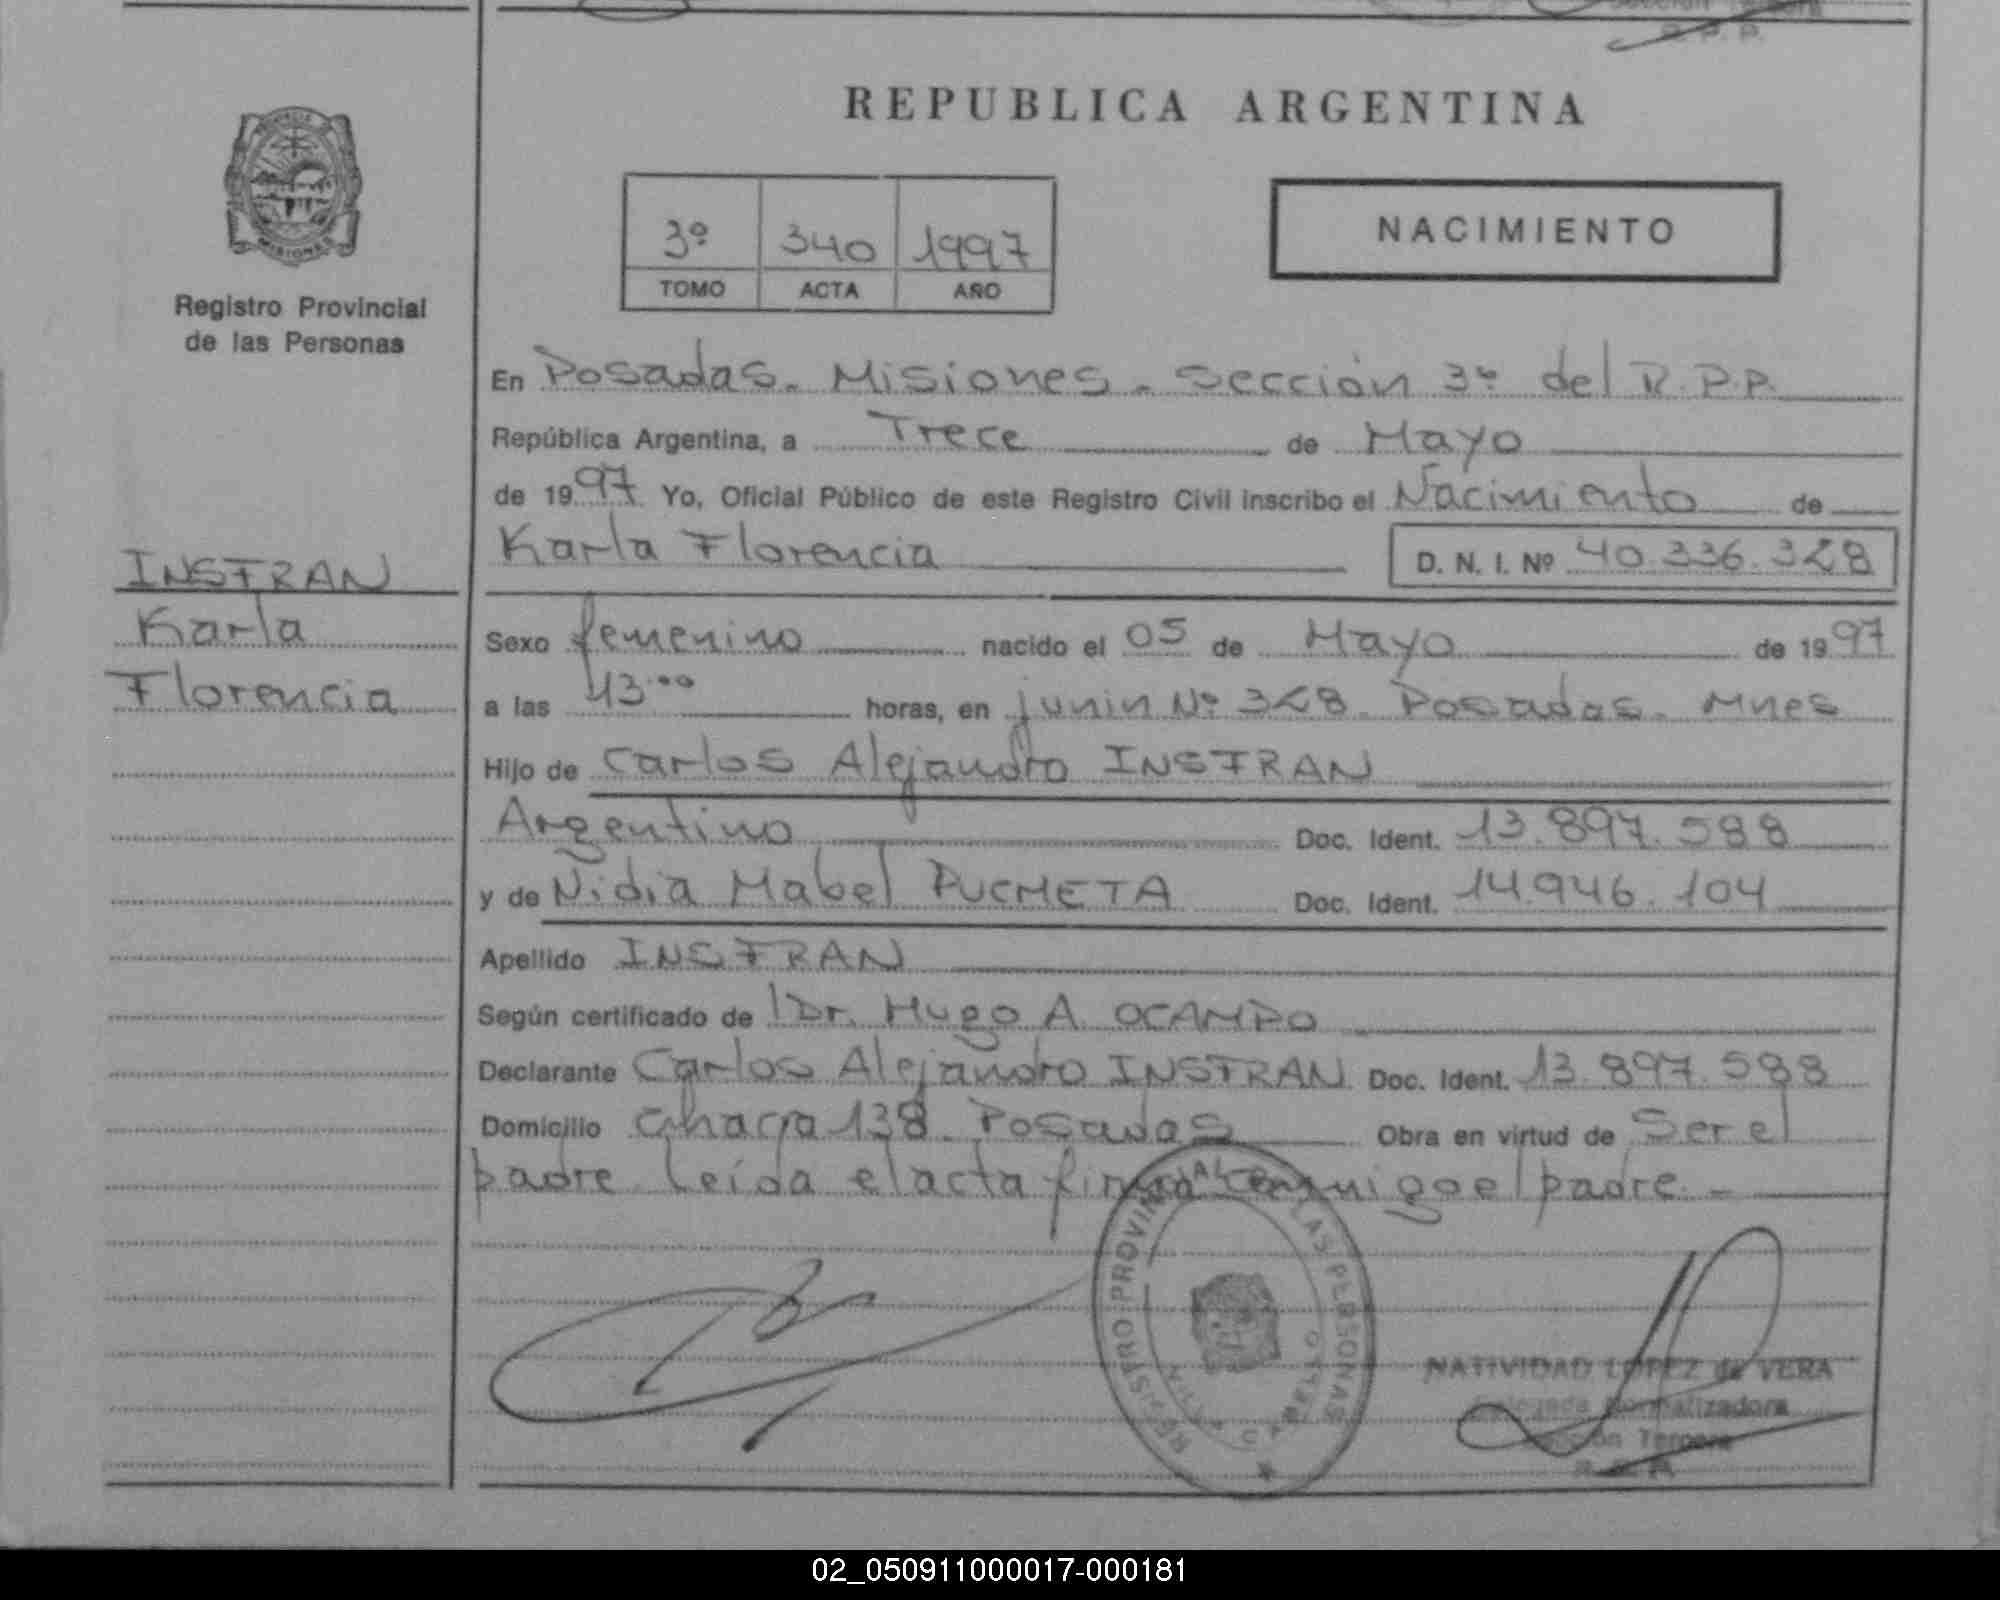 REPUBLICA ARGENTINA
3º 340 1997
TOMO ACTA AÑO
NACIMIENTO
Registro Provincial
de las Personas
En Posadas. Misiones. Sección 3º del R.P.P.
República Argentina, a Trece de Mayo
de 1997 Yo, Oficial Público de este Registro Civil inscribo el Nacimiento de
Karla Florencia D. N. I. Nº 40.336.328
INSFRAN
Karla
Florencia
Sexo femenino nacido el 05 de Mayo de 1997
a las 13.00 horas, en junin Nº 328. Posadas. Mnes
Hijo de Carlos Alejandro INSFRAN
Argentino Doc. Ident. 13.897.588
y de Nidia Mabel PUCHETA Doc. Ident. 14.946.104
Apellido INSFRAN
Según certificado de Dr. Hugo A. OCAMPO
Declarante Carlos Alejandro INSFRAN Doc. Ident. 13.897.588
Domicilio Chacra 138. Posadas Obra en virtud de Ser el
padre. Leída el acta firma conmigo el padre.-
REGISTRO PROVINCIAL LAS PERSONAS
NATIVIDAD LOPEZ de VERA
Delegada Normalizadora
Sección Tercera
02_050911000017-000181